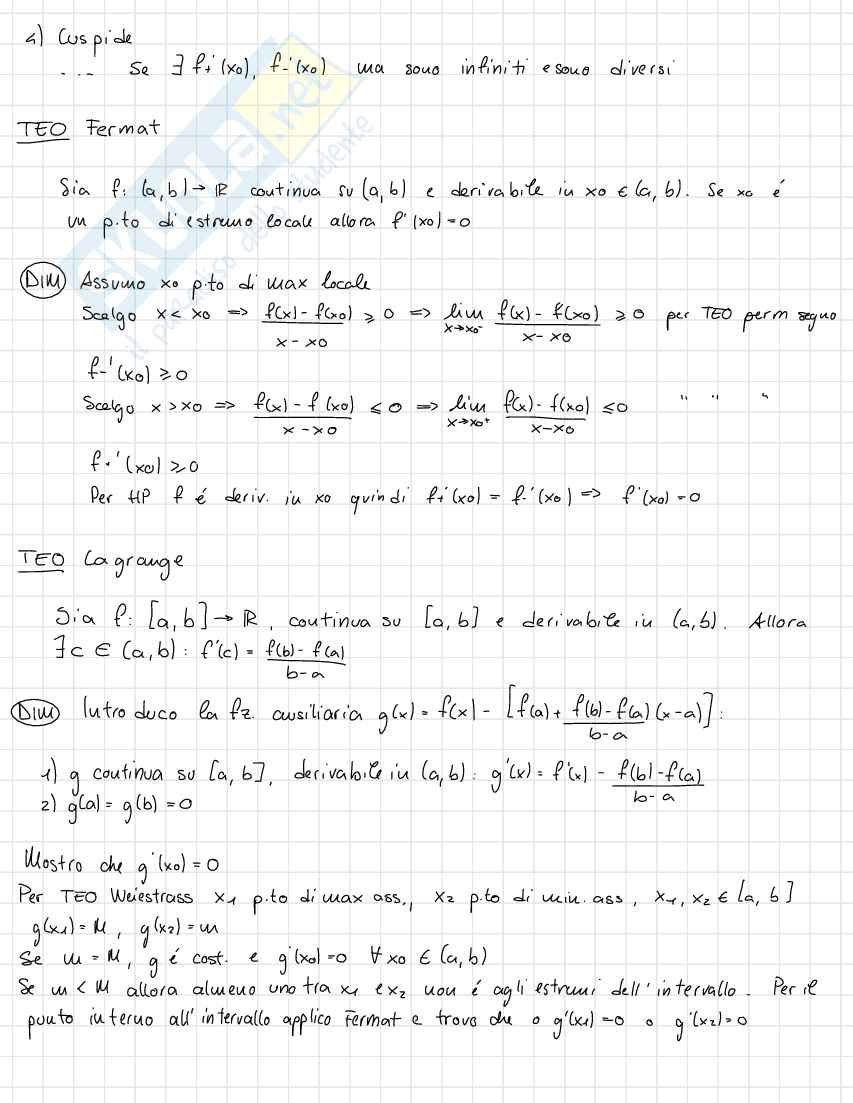 4) Cuspide
.... Se ∃ f+'(x0), f-'(x0) ma sono infiniti e sono diversi
TEO Fermat
Sia f: (a,b) → ℝ continua su (a,b) e derivabile in x0 ∈ (a,b). Se x0 é
un p.to di estremo locale allora f'(x0)=0
DIM Assumo x0 p.to di max locale
Scelgo x < x0 => f(x) - f(x0) / x - x0 ≥ 0 => lim x→x0- f(x) - f(x0) / x - x0 ≥ 0 per TEO perm segno
f-'(x0) ≥ 0
Scelgo x > x0 => f(x) - f(x0) / x - x0 ≤ 0 => lim x→x0+ f(x) - f(x0) / x - x0 ≤ 0 " " "
f+'(x0) ≥ 0
Per HP f é deriv. in x0 quindi f+'(x0) = f-'(x0) => f'(x0) = 0
TEO Lagrange
Sia f: [a,b] → ℝ, continua su [a,b] e derivabile in (a,b). Allora
∃c ∈ (a,b): f'(c) = f(b) - f(a) / b-a
DIM Introduco la fz. ausiliaria g(x) = f(x) - [f(a) + f(b) - f(a) / b-a (x-a)]:
1) g continua su [a,b], derivabile in (a,b): g'(x) = f'(x) - f(b) - f(a) / b-a
2) g(a) = g(b) = 0
Mostro che g'(x0) = 0
Per TEO Weiestrass x1 p.to di max ass., x2 p.to di min. ass, x1, x2 ∈ [a, b]
g(x1) = M, g(x2) = m
Se m = M, g é cost. e g'(x0) = 0 ∀ x0 ∈ (a,b)
Se m < M allora almeno uno tra x1 e x2 non é agli estremi dell'intervallo. Per il
punto interno all'intervallo applico Fermat e trovo che o g'(x1) = 0 o g'(x2) = 0
SKUOLA.net
il paradiso dello studente